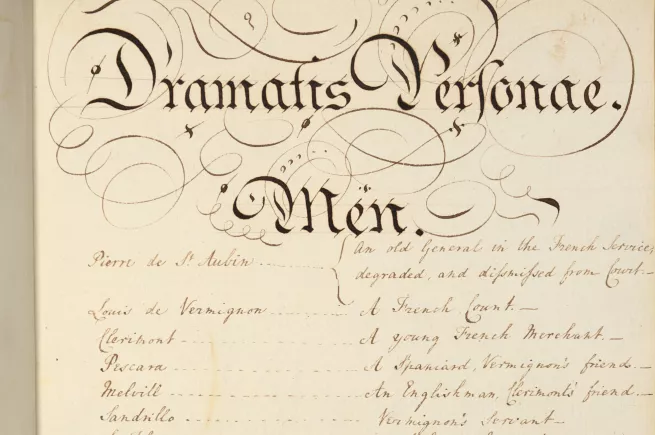 Dramatis Personae.
Men.
Pierre de St Aubin ........... { An old General in the French Service,
degraded, and dismissed from Court. —
Louis de Vermignon ........... A French Count. —
Clerimont ........... A young French Merchant. —
Pescara ........... A Spaniard, Vermignon's friend. —
Melvill ........... An Englishman, Clerimont's friend. —
Sandrillo ........... Vermignon's Servant —